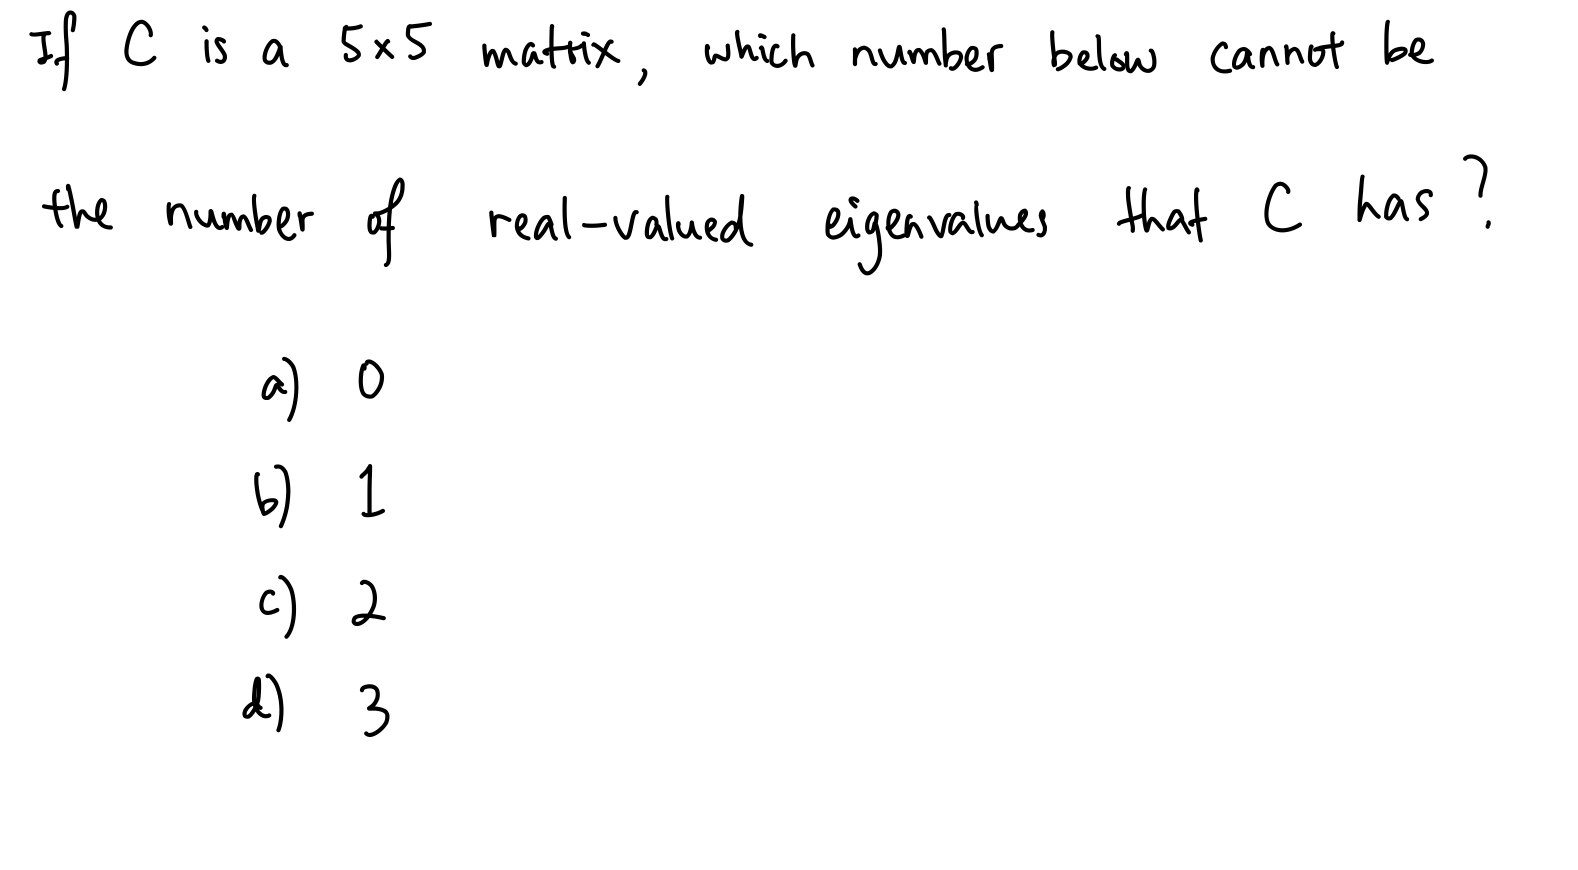 If C is a 5×5 matrix, which number below cannot be
the number of real-valued eigenvalues that C has?
a) 0
b) 1
c) 2
d) 3